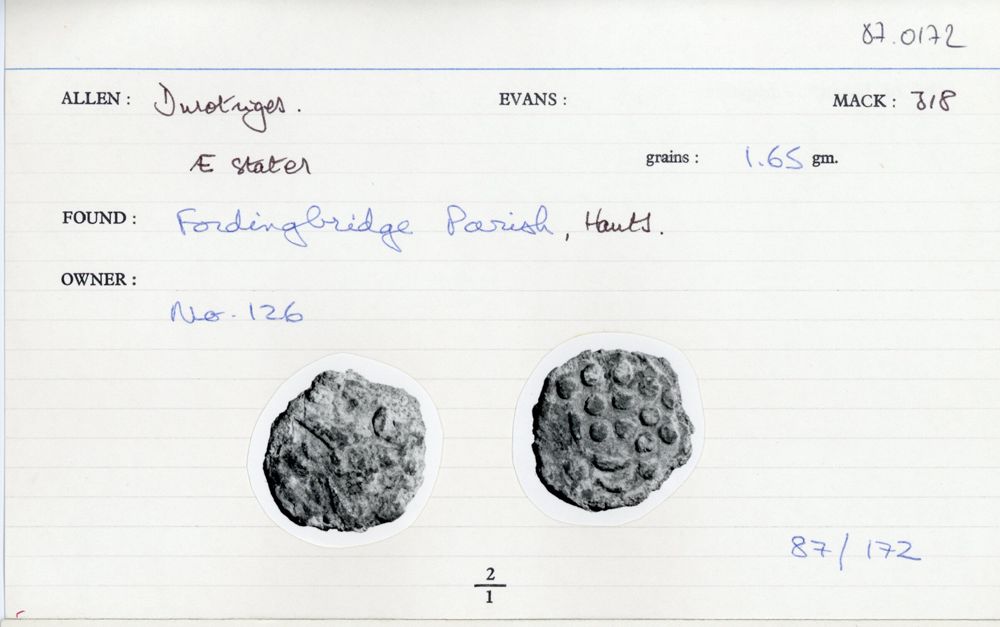 87.0172
ALLEN : Durotriges. EVANS : MACK : 318
Æ stater grains : 1.65 gm.
FOUND : Fordingbridge Parish, Hants.
OWNER :
No. 126
87/172
2
1